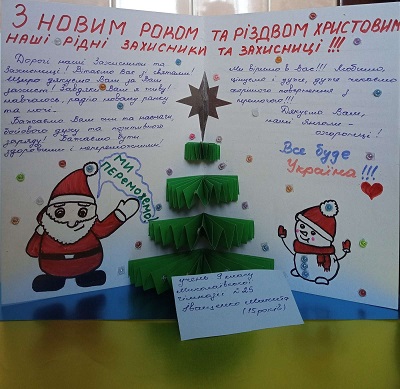 З НОВИМ РОКОМ ТА РІЗДВОМ ХРИСТОВИМ
НАШІ РІДНІ ЗАХИСНИКИ ТА ЗАХИСНИЦІ !!!
Дорогі наші Захисники та
Захисниці! Вітаємо Вас зі святами!
Щиро дякуємо Вам за Ваш
захист! Завдяки Вам я живу!
навчаюсь, радію новому ранку
та ночі.
Бажаємо Вам сил та наснаги,
бойового духу та позитивного
заряду! Бажаємо бути
здоровими і непереможними!
Ми віримо в Вас!!! Любимо,
цінуємо і дуже, дуже чекаємо
скоршого повернення з
перемогою!!!
Дякуємо Вам,
наші Янголи
охоронці!
Все буде
Україна!!!
МИ
ПЕРЕМОЖЕМО!
учень 9 класу
Миколаївської
гімназії №25
Іваненко Микита
(15 років)